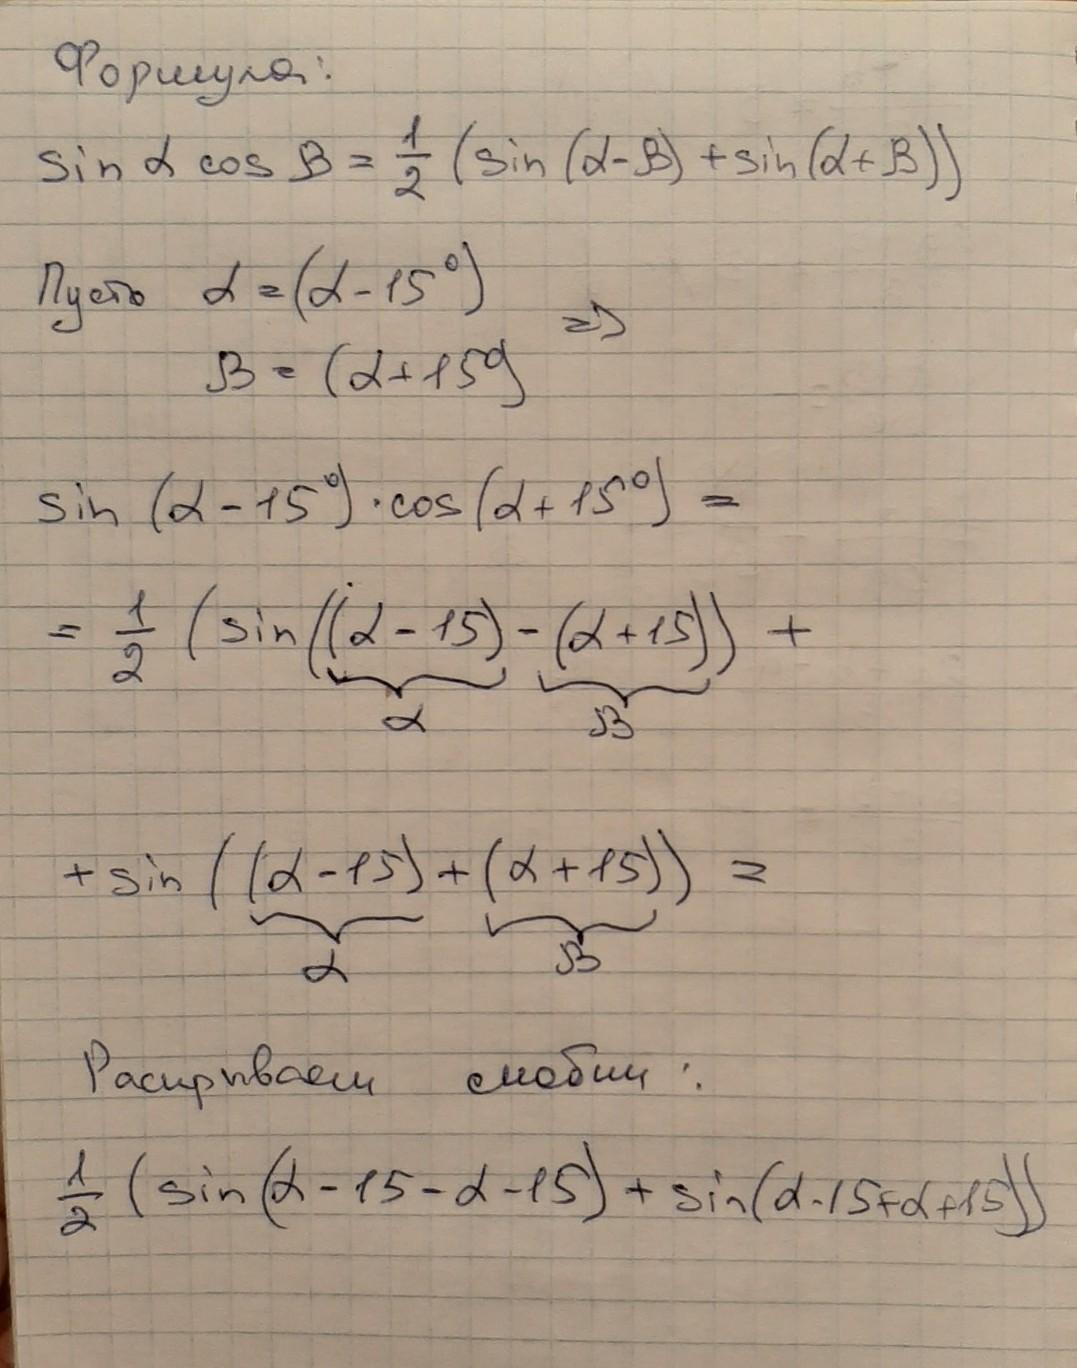 Формула:
sin α cos β = 1/2 (sin (α-β) + sin (α+β))
Пусть α = (α - 15°)
β = (α + 15°) =>
sin (α - 15°) · cos (α + 15°) =
= 1/2 (sin ((α - 15) - (α + 15)) +
α β
+ sin ((α - 15) + (α + 15)) =
α β
Раскрываем скобки:
1/2 (sin (α - 15 - α - 15) + sin (α - 15 + α + 15))